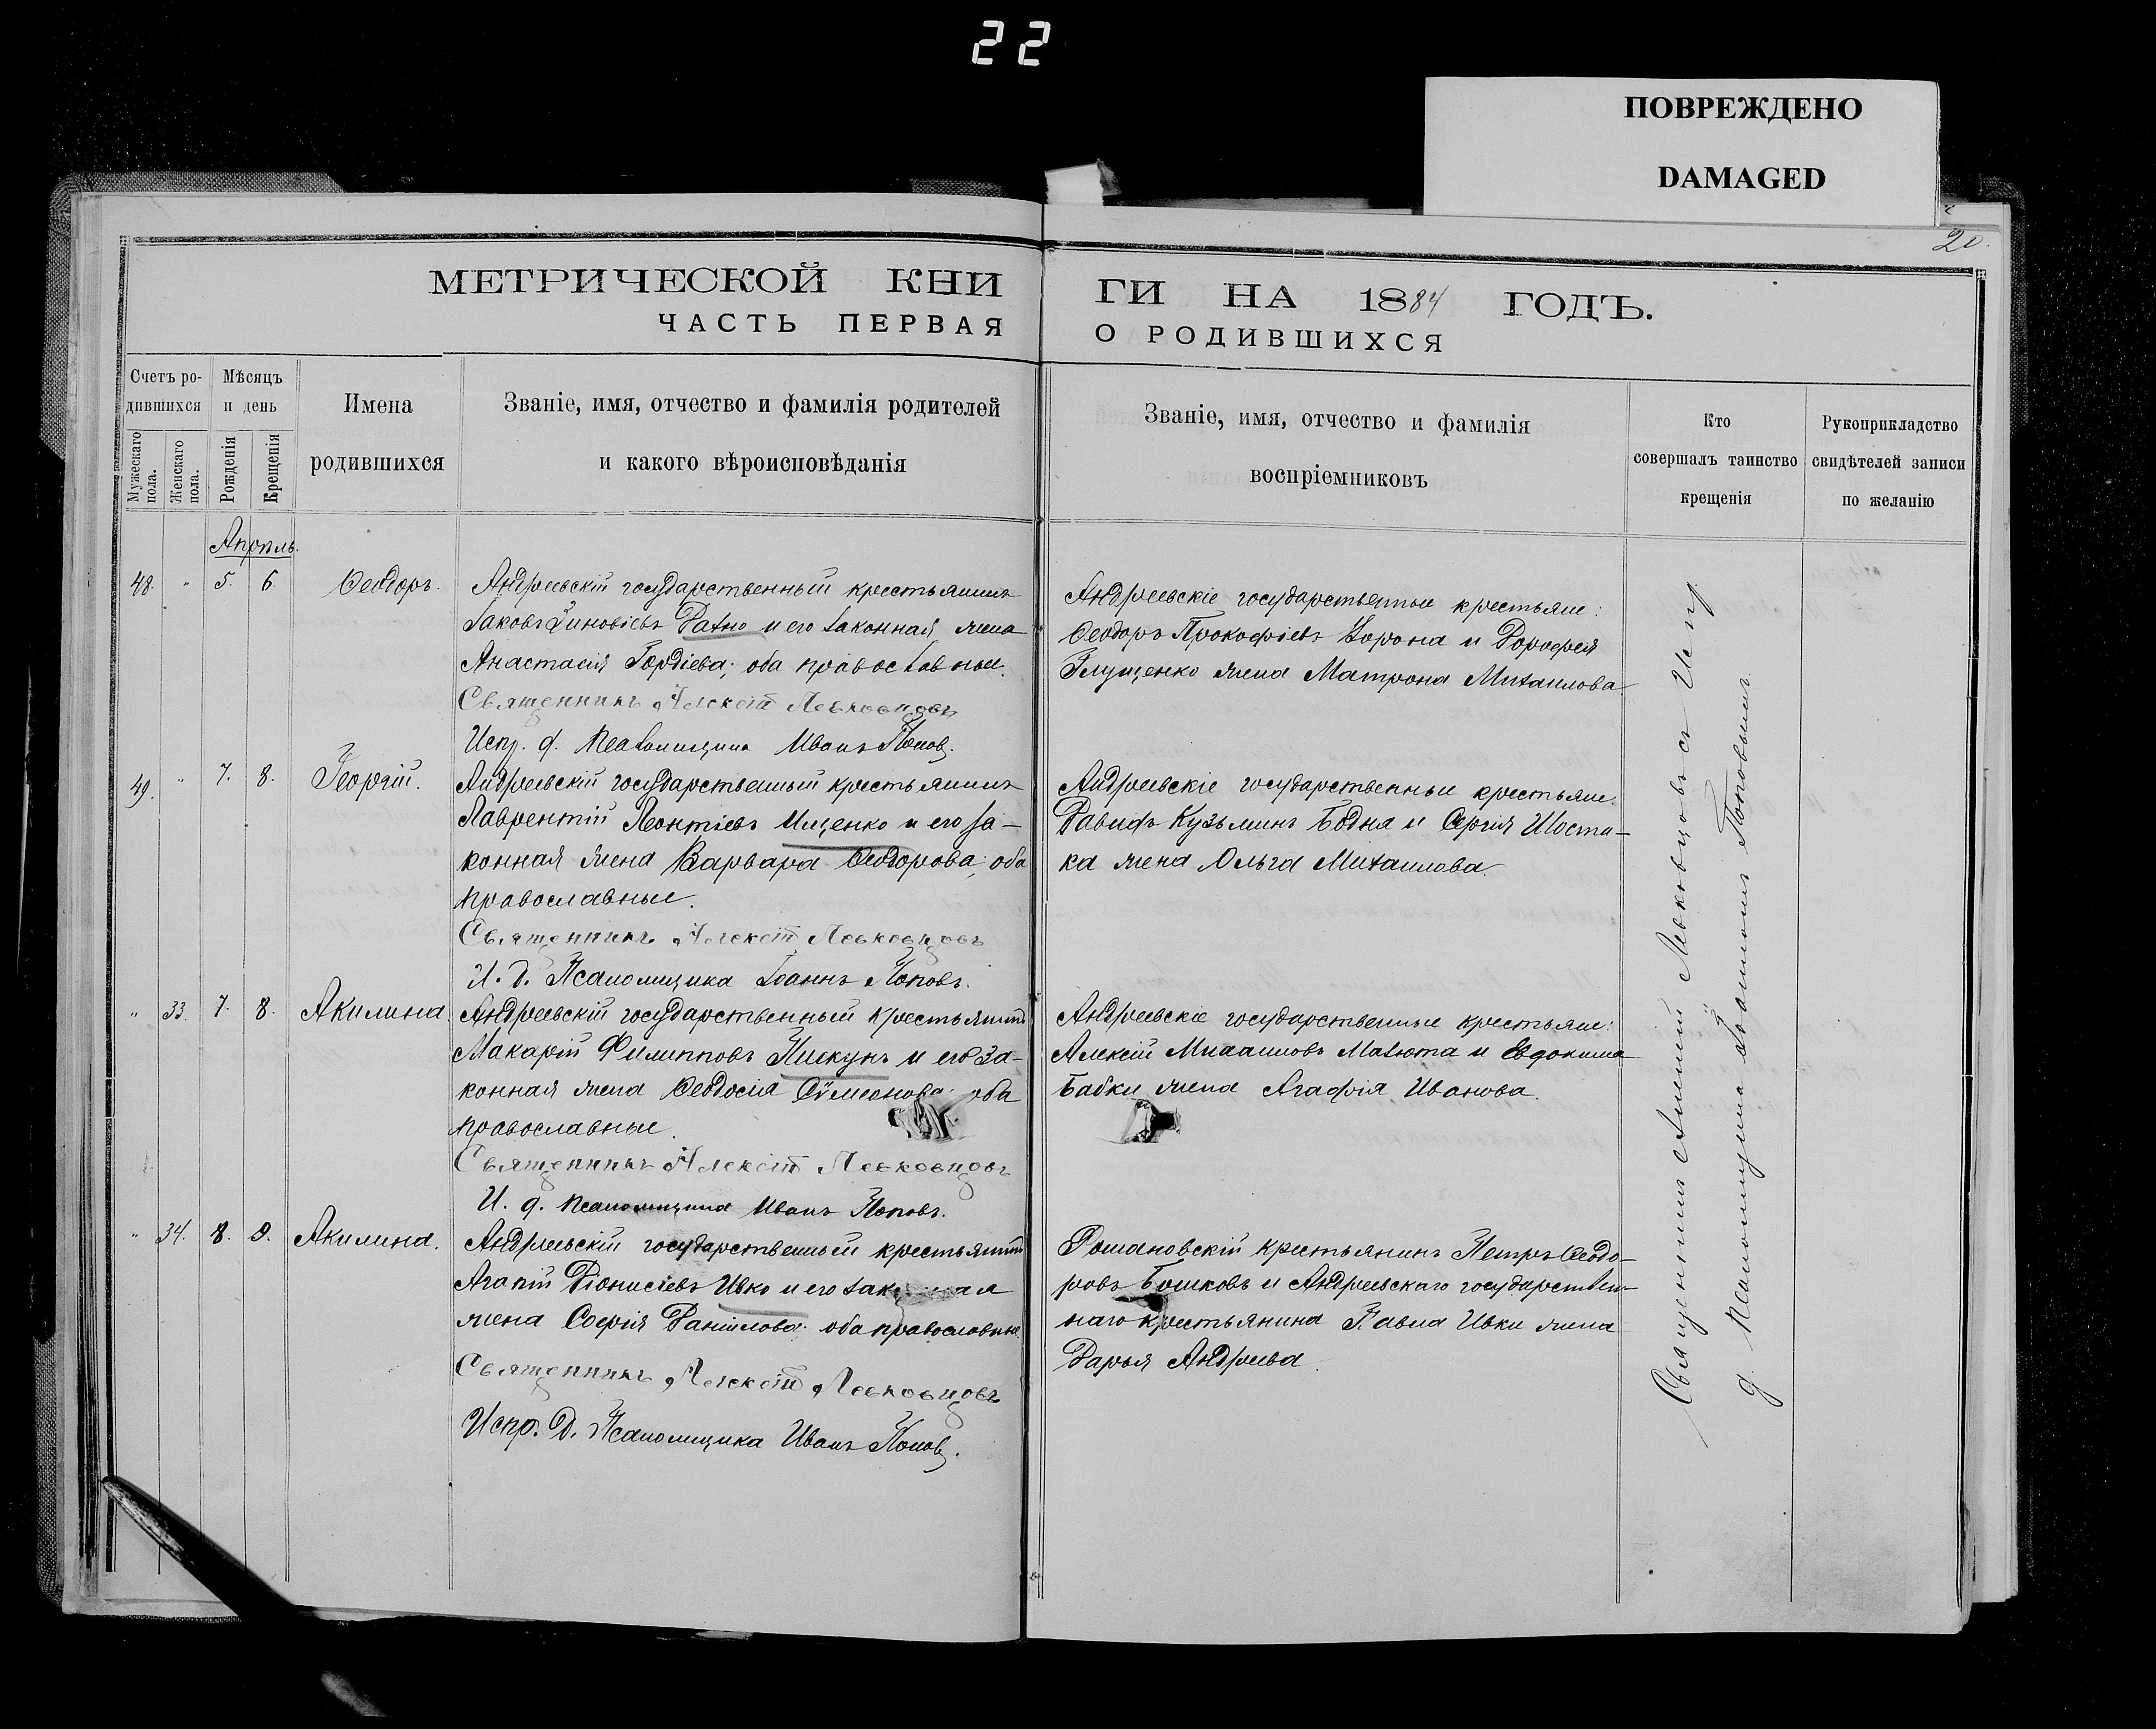 22
ПОВРЕЖДЕНО
DAMAGED
20.
МЕТРИЧЕСКОЙ КНИ
ЧАСТЬ ПЕРВАЯ
ГИ НА 1884 ГОДЪ.
О РОДИВШИХСЯ
Счетъ ро-
дившихся
Мужескаго
пола.
Женскаго
пола.
Мѣсяцъ
и день
Рожденія
Крещенія
Имена
родившихся
Званіе, имя, отчество и фамилія родителей
и какого вѣроисповѣданія
Званіе, имя, отчество и фамилія
воспріемниковъ
Кто
совершалъ таинство
крещенія
Рукоприкладство
свидѣтелей записи
по желанію
Апрѣль.
48. " 5. 6. Ѳеодоръ.
Андреевскій государственный крестьянинъ
Іаковъ Зиновіевъ и его законная жена
Анастасія Гордіева; оба православные.
Священникъ Алексій Левковцовъ
Испр. д. Псаломщика Иванъ Поповъ.
Андреевскіе государственные крестьяне:
Ѳеодоръ Прокофіевъ Ворона и Дорофея
Глущенко жена Матрона Михаилова
49. " 7. 8. Георгій.
Андреевскій государственный крестьянинъ
Лаврентій Леонтіевъ Ищенко и его за-
конная жена Варвара Ѳеодорова; оба
православные.
Священникъ Алексій Левковцовъ
И. д. Псаломщика Іоаннъ Поповъ.
Андреевскіе государственные крестьяне:
Давидъ Кузьминъ Бодня и Сергія Шоста-
ка жена Ольга Михаилова.
" 33. 7. 8. Акилина.
Андреевскій государственный крестьянинъ
Макарій Филипповъ Пискунъ и его за-
конная жена Ѳеодосія Сѵмеонова; оба
православные.
Священникъ Алексій Левковцовъ
И. д. Псаломщика Иванъ Поповъ.
Андреевскіе государственные крестьяне:
Алексій Михаиловъ Матюта и Евдокима
Бабки жена Агафія Иванова.
" 34. 8. 9. Акилина.
Андреевскій государственный крестьянинъ
Агапій Діонисіевъ Ивко и его законная
жена Софія Даніилова; оба православные.
Священникъ Алексій Левковцовъ
Испр. д. Псаломщика Иванъ Поповъ.
Романовскій крестьянинъ Петръ Ѳеодо-
ровъ и Андреевскаго государствен-
наго крестьянина Павла Ивки жена
Дарья Андреева.
Священникъ Алексій Левковцовъ съ И спр.
д. Псаломщика Іоанномъ Поповымъ